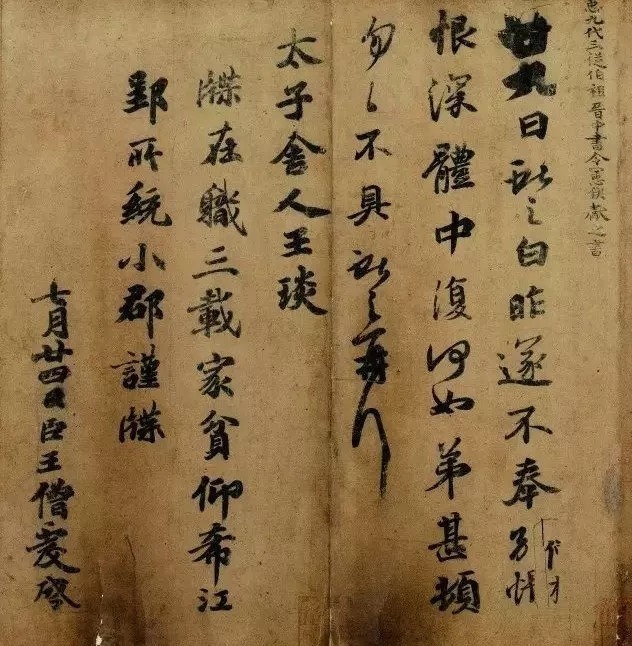 𢘑九代三從伯祖晉中書令憲侯獻之書
廿九日獻之白昨遂不奉別悵
恨深體中復何如弟甚頓
匆匆不具獻之再拜
太子舍人王琰
牒在職三載家貧仰希江
郢所統小郡謹牒
七月廿四日臣王僧虔啓